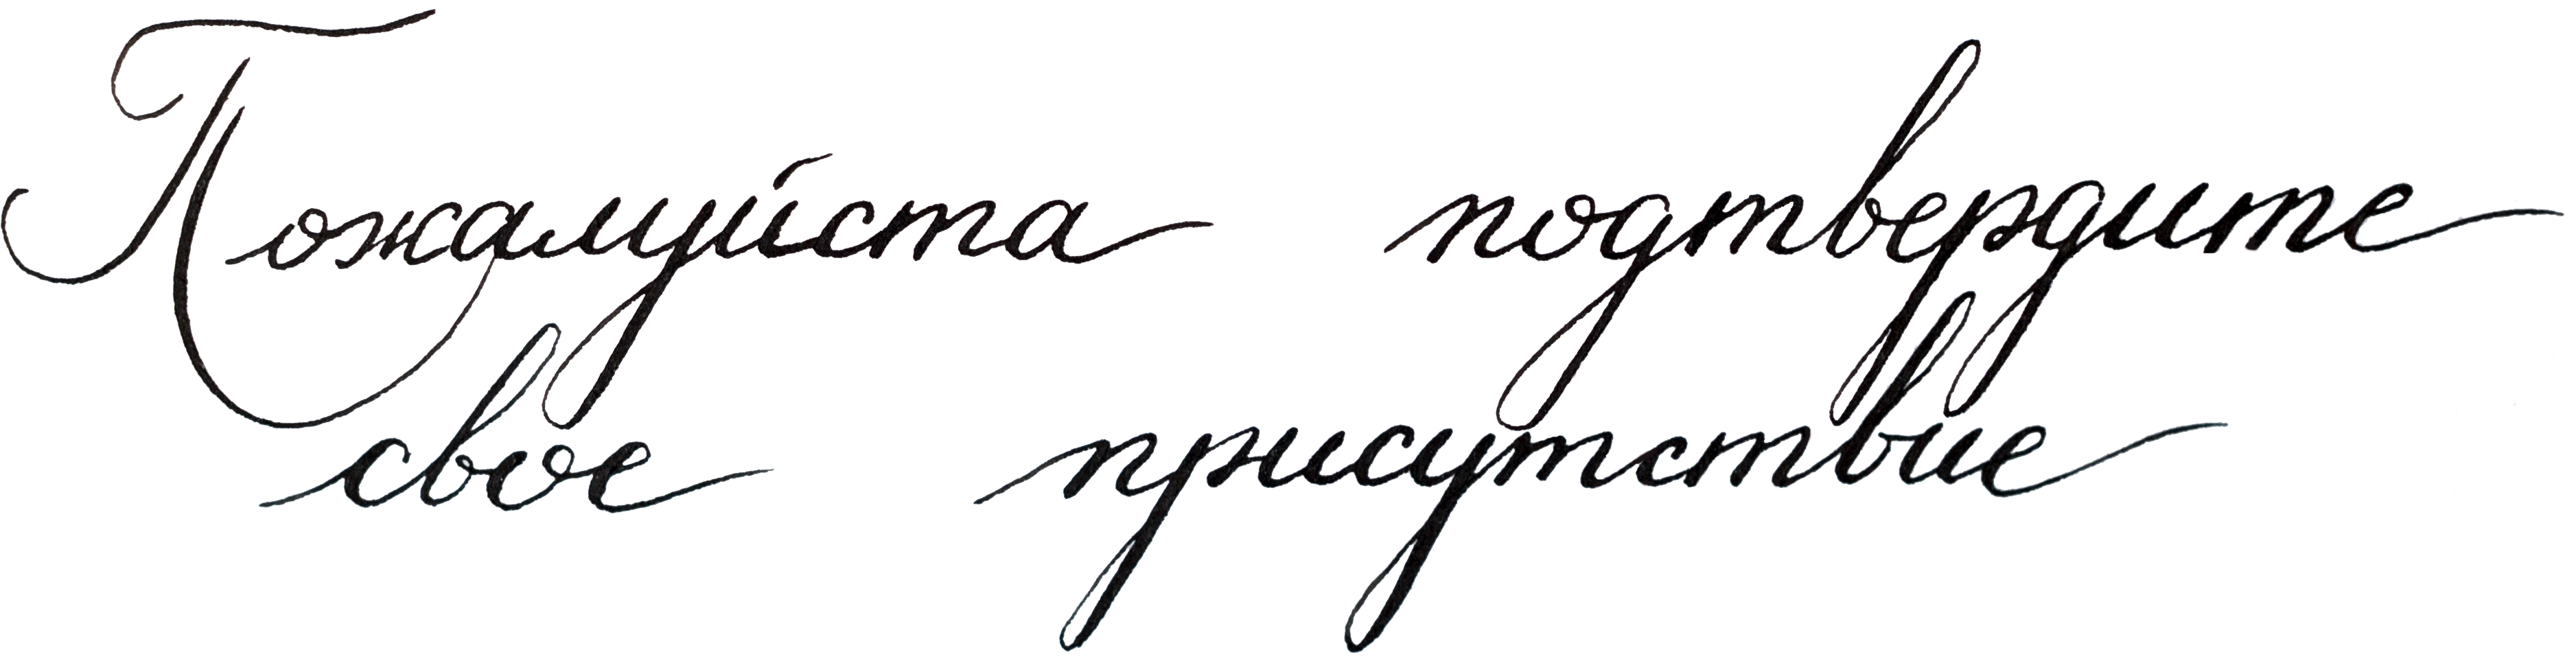 Пожалуйста подтвердите
свое присутствие